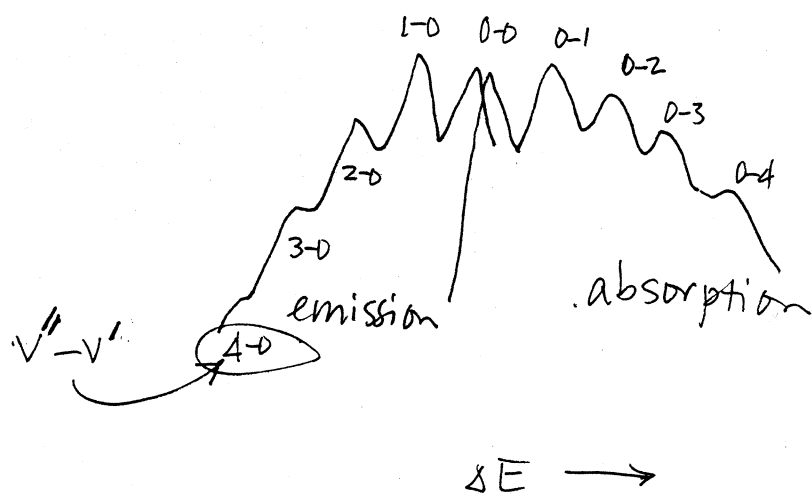 1-0 0-0 0-1
0-2
0-3
2-0
0-4
3-0
emission
absorption
V" - V'
4-0
ΔE →